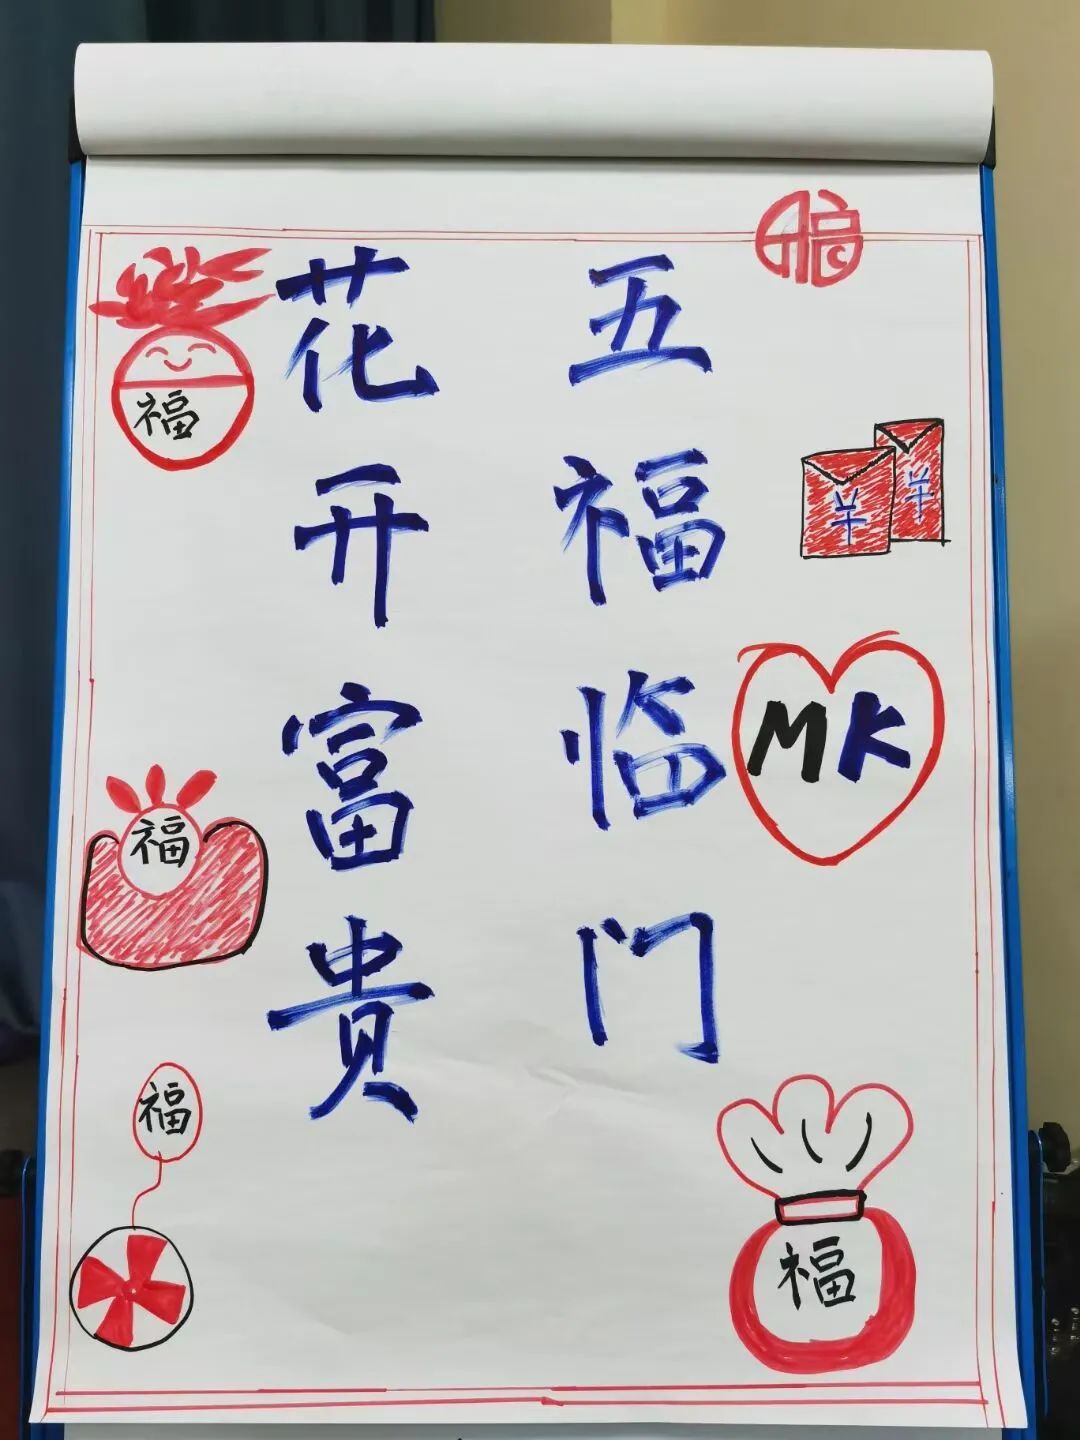 五福临门
花开富贵
福
福
福
福
羊
羊
MK